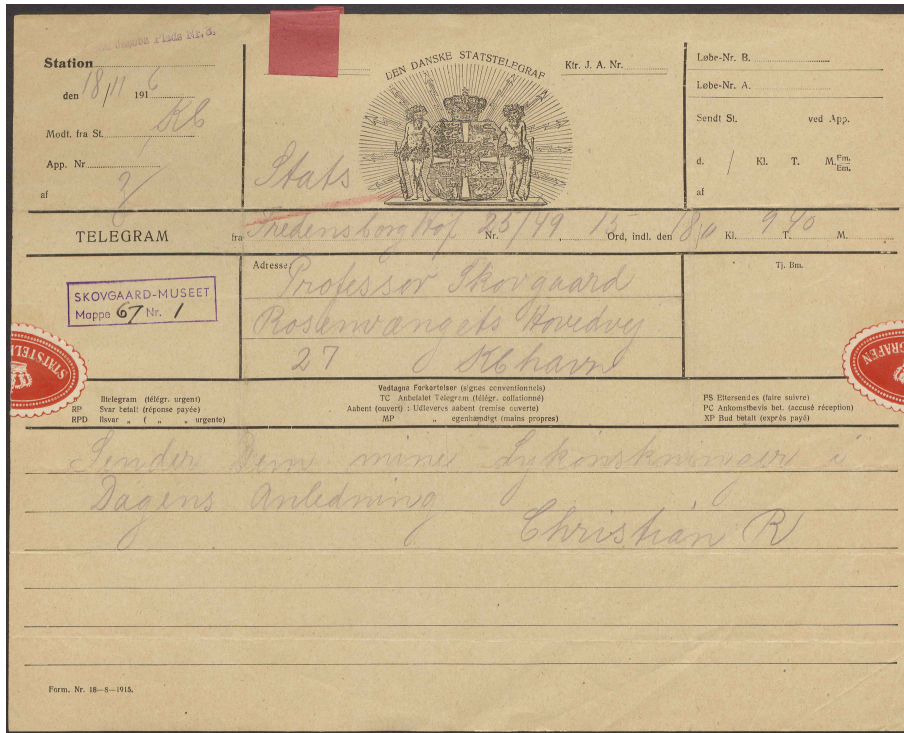 Plads Nr. 3.
Station
den 18/11 1916
Modt. fra St. Kb
App. Nr
af
DEN DANSKE STATSTELEGRAF
Stats
Ktr. J. A. Nr.
Løbe-Nr. B.
Løbe-Nr. A.
Sendt St. ved App.
d. / Kl. T. M. Fm. Em.
af
TELEGRAM
fra Fredensborg Hof Nr. 25/49, 15 Ord, indl. den 18/11 Kl. 9 T. 40 M.
SKOVGAARD-MUSEET
Mappe 67 Nr. 1
Adresse:
Professor Skovgaard
Rosenvængets Hovedvej
27 Kbhavn
Tj. Bm.
STATSTEL
GRAFEN
Vedtagne Forkortelser (signes conventionnels)
Iltelegram (télégr. urgent)
RP Svar betalt (réponse payée)
RPD Ilsvar „ ( „ „ urgente)
TC Anbefalet Telegram (télégr. collationné)
Aabent (ouvert) : Udleveres aabent (remise ouverte)
MP „ egenhændigt (mains propres)
FS Eftersendes (faire suivre)
PC Ankomstbevis bet. (accusé réception)
XP Bud betalt (exprès payé)
Sender Dem mine Lykønskninger i
Dagens Anledning
Christian R
Form. Nr. 18—8—1915.